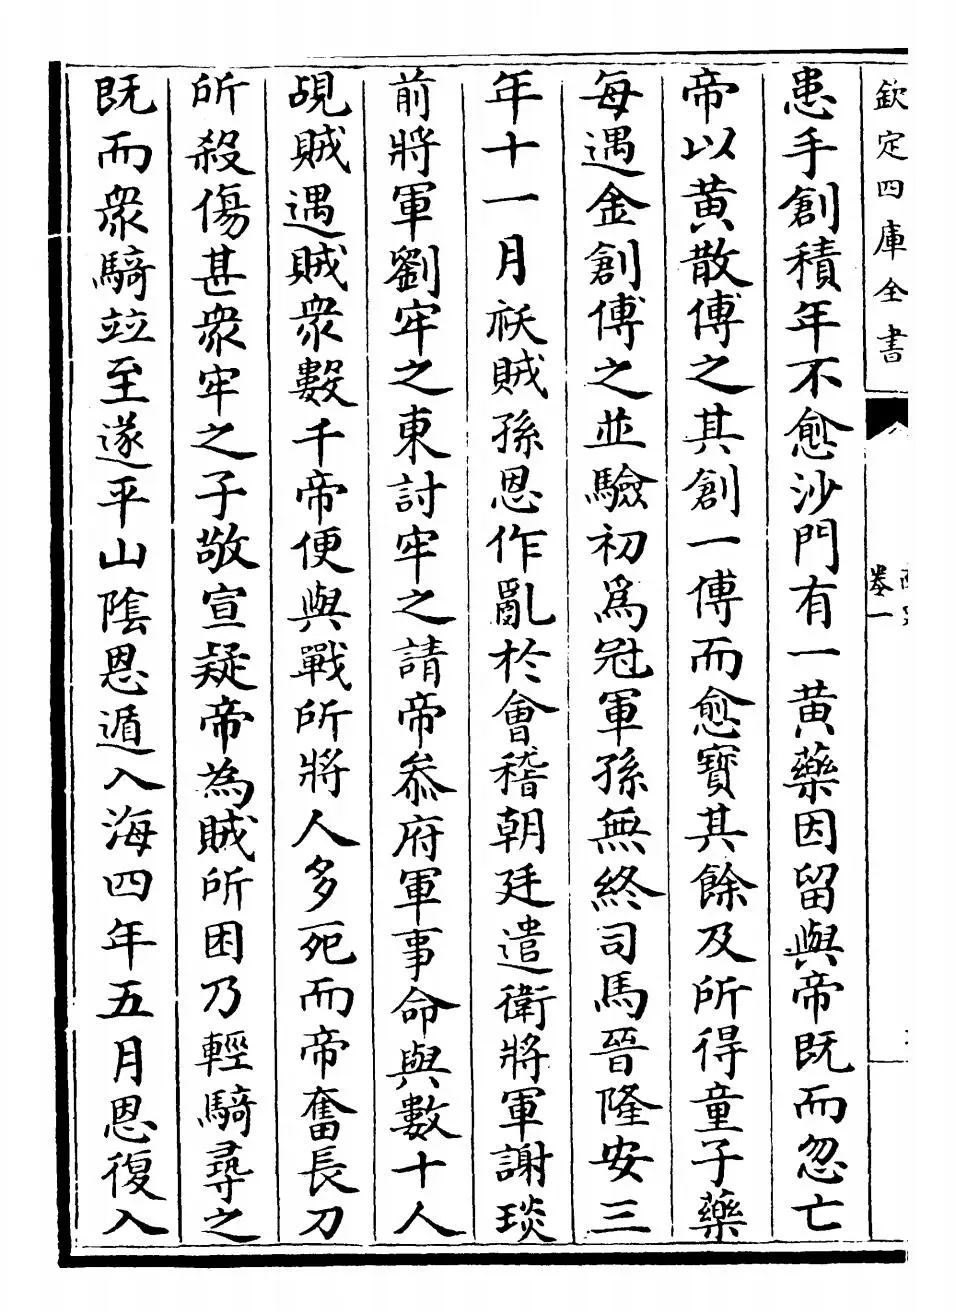 欽定四庫全書
卷一
患手創積年不愈沙門有一黄藥因留與帝既而忽亡
帝以黄散傅之其創一傅而愈寳其餘及所得童子藥
每遇金創傅之並驗初爲冠軍孫無終司馬晉隆安三
年十一月祅賊孫恩作亂於會稽朝廷遣衛將軍謝琰
前將軍劉牢之東討牢之請帝叅府軍事命與數十人
覘賊遇賊衆數千帝便與戰所將人多死而帝奮長刀
所殺傷甚衆牢之子敬宣疑帝為賊所困乃輕騎尋之
既而衆騎竝至遂平山隂恩遁入海四年五月恩復入